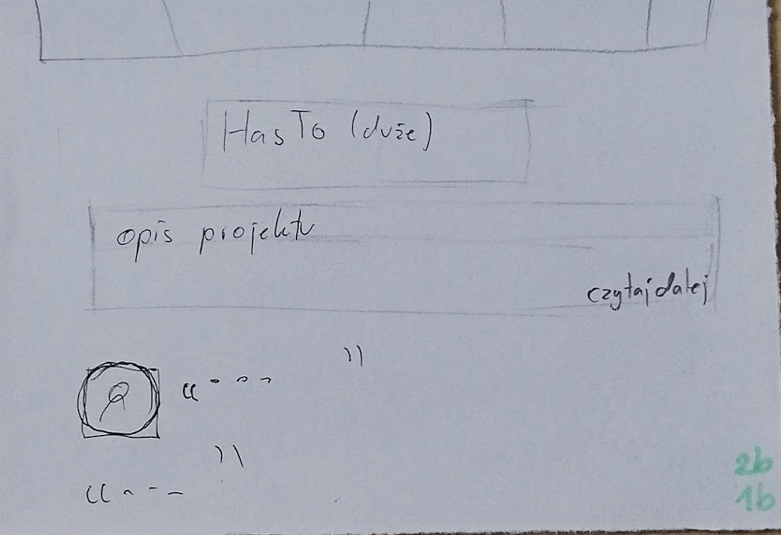 Hasło (duże)
opis projektu
czytaj dalej
"
"
2b
1b